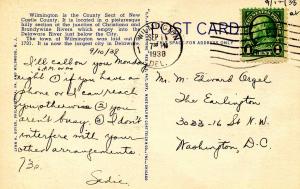 Wilmington is the County Seat of New
Castle County. It is located in a picturesque
hilly section at the junction of Christiana and
Brandywine Rivers which empty into the
Delaware River just below the City.
The town of Wilmington was laid out in
1731. It is now the largest city in Delaware.
POST CARD
SEP 11
7 PM
1938
DEL.
9/10/38
I'll call you Monday
night if you have a
phone or I can reach
you otherwise if you
aren't busy. I don't
interfere with your
other arrangements
73s
Sadie.
Mr. M. Edward Orgel
The Earlington
3033-16 St N.W.
Washington, D.C.